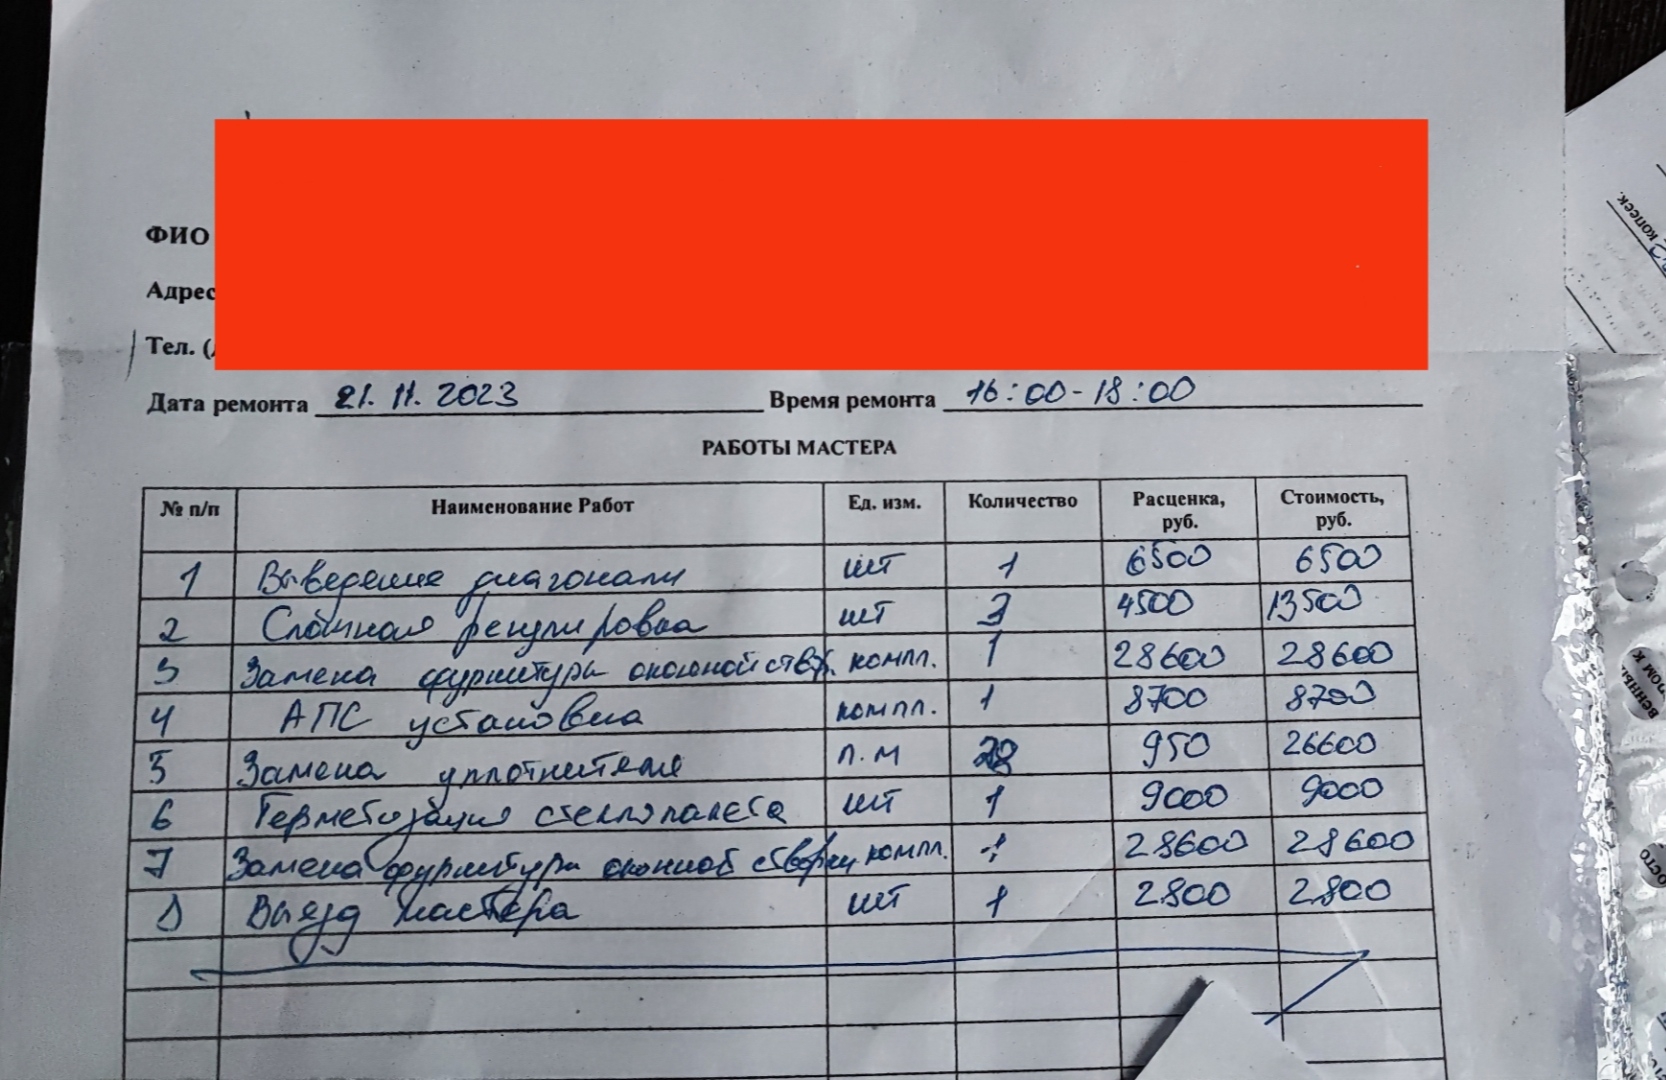 ФИО
Адрес
Тел. (
Дата ремонта 21.11.2023 Время ремонта 16:00-18:00
РАБОТЫ МАСТЕРА
№ п/п Наименование Работ Ед. изм. Количество Расценка, руб. Стоимость, руб.
1 Выведение диагонали шт 1 6500 6500
2 Сложная регулировка шт 3 4500 13500
3 Замена фурнитуры оконной ств. компл. 1 28600 28600
4 АПС установка компл. 1 8700 8700
5 Замена уплотнителя п.м 28 950 26600
6 Герметизация стеклопакета шт 1 9000 9000
7 Замена фурнитуры оконной створки компл. 1 28600 28600
8 Выезд мастера шт 1 2800 2800
копеек.